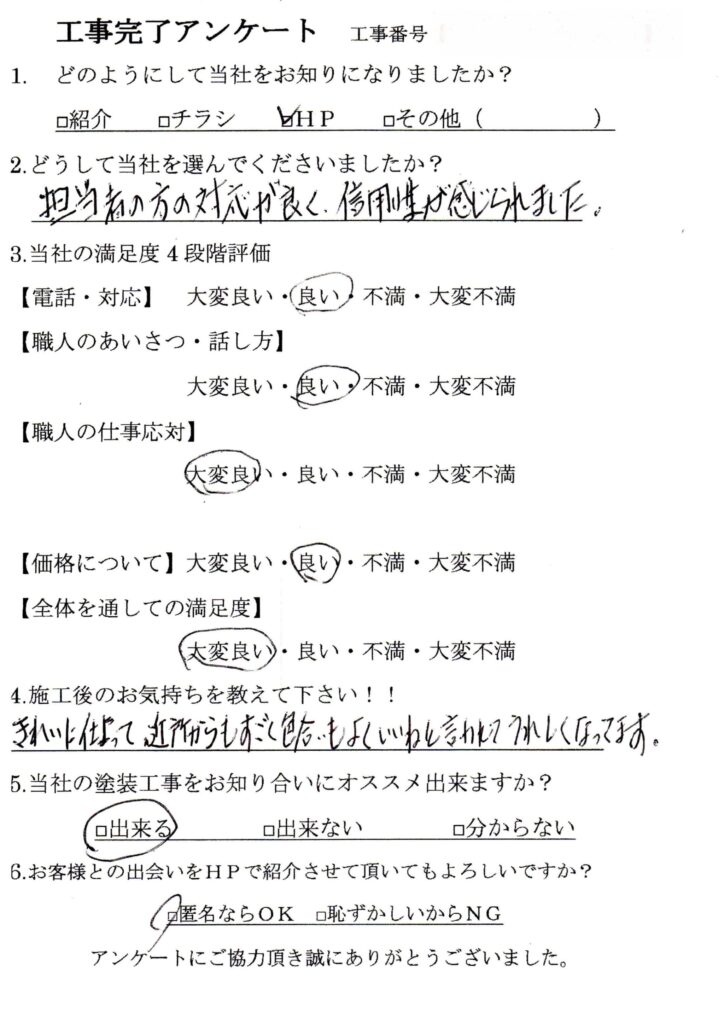 工事完了アンケート 工事番号
1. どのようにして当社をお知りになりましたか？
□紹介 □チラシ ☑ＨＰ □その他（ ）
2.どうして当社を選んでくださいましたか？
担当者の方の対応が良く、信用性が感じられました。
3.当社の満足度４段階評価
【電話・対応】 大変良い・良い・不満・大変不満
【職人のあいさつ・話し方】
大変良い・良い・不満・大変不満
【職人の仕事応対】
大変良い・良い・不満・大変不満
【価格について】大変良い・良い・不満・大変不満
【全体を通しての満足度】
大変良い・良い・不満・大変不満
4.施工後のお気持ちを教えて下さい！！
きれいに仕上って 近所からもすごく色合いもよくいいねと言われてうれしくなってます。
5.当社の塗装工事をお知り合いにオススメ出来ますか？
□出来る □出来ない □分からない
6.お客様との出会いをＨＰで紹介させて頂いてもよろしいですか？
□匿名ならＯＫ □恥ずかしいからＮＧ
アンケートにご協力頂き誠にありがとうございました。